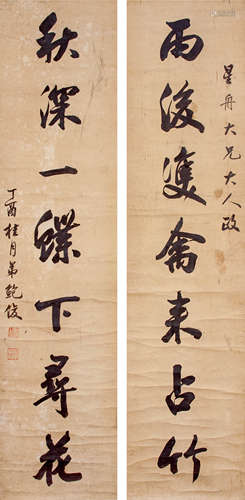 星舟大兄大人政
雨後雙禽来占竹
秋深一蝶下尋花
丁酉桂月弟鲍俊